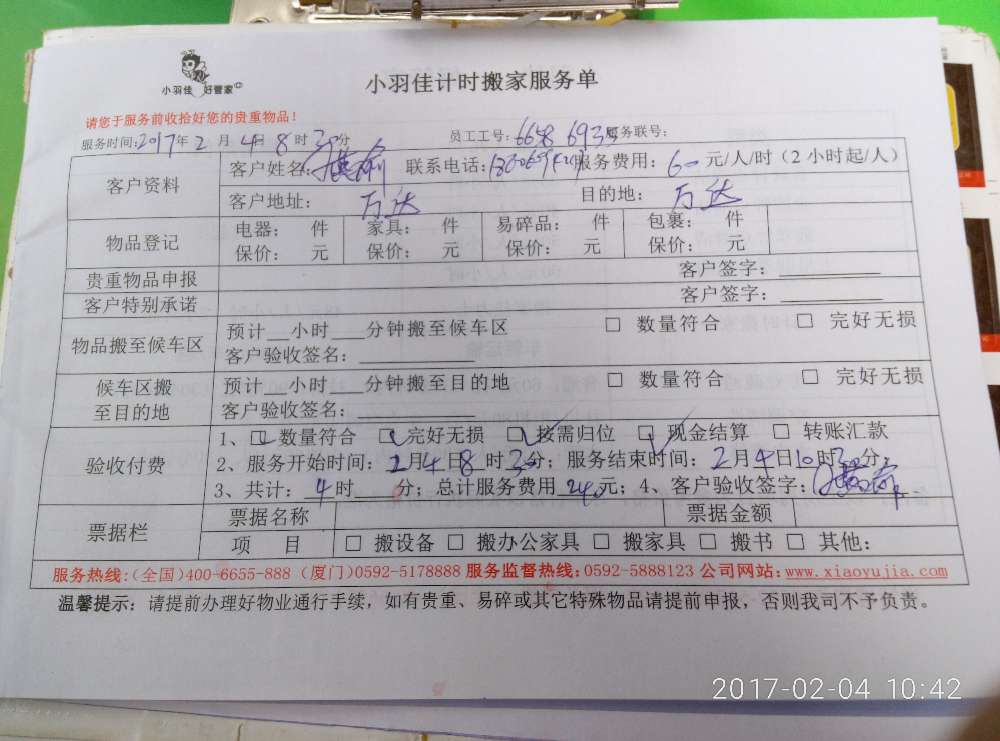 小羽佳 好管家
小羽佳计时搬家服务单
请您于服务前收拾好您的贵重物品！
服务时间:2017年2月4日8时30分 员工工号:6658 6933 服务联号:
客户资料 客户姓名: 联系电话: 服务费用: 60元/人/时（2小时起/人）
客户地址: 万达 目的地: 万达
物品登记 电器: 件 家具: 件 易碎品: 件 包裹: 件
保价: 元 保价: 元 保价: 元 保价: 元
贵重物品申报 客户签字:
客户特别承诺 客户签字:
物品搬至候车区 预计__小时___分钟搬至候车区 □ 数量符合 □ 完好无损
客户验收签名:
候车区搬至目的地 预计__小时___分钟搬至目的地 □ 数量符合 □ 完好无损
客户验收签名:
验收付费 1、☑数量符合 ☑完好无损 ☑按需归位 ☑现金结算 □ 转账汇款
2、服务开始时间: 2月4日8时30分; 服务结束时间: 2月4日10时30分;
3、共计: 4时___分; 总计服务费用240元; 4、客户验收签字:
票据栏 票据名称 票据金额
项 目 □ 搬设备 □ 搬办公家具 □ 搬家具 □ 搬书 □ 其他:
服务热线:(全国)400-6655-888 (厦门)0592-5178888 服务监督热线:0592-5888123 公司网站:www.xiaoyujia.com
温馨提示: 请提前办理好物业通行手续，如有贵重、易碎或其它特殊物品请提前申报，否则我司不予负责。
2017-02-04 10:42